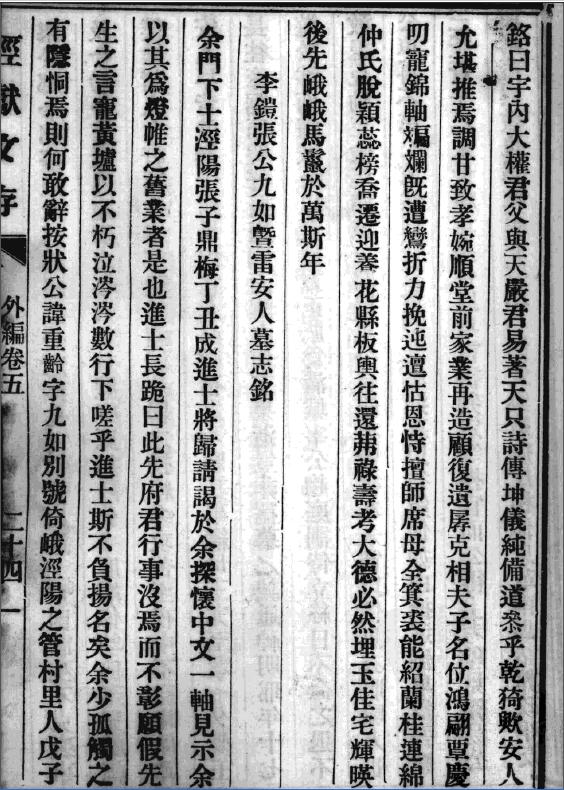 銘曰宇內大權君父與天嚴君易著天只詩傳坤儀純備道叅乎乾猗歟安人
允堪推焉調甘致孝婉順堂前家業再造顧復遺孱克相夫子名位鴻翩覃慶
叨寵錦軸斒斕旣遭鸞折力挽迍邅怙恩恃擅師席母全箕裘能紹蘭桂連綿
仲氏脫穎蕊榜喬遷迎養花縣板輿往還茀祿壽考大德必然埋玉佳宅輝暎
後先峨峨馬鬣於萬斯年
李鎧張公九如曁雷安人墓志銘
余門下士涇陽張子鼎梅丁丑成進士將歸請謁於余探懷中文一軸見示余
以其爲燈帷之舊業者是也進士長跪曰此先府君行事沒焉而不彰願假先
生之言寵黃壚以不朽泣涔涔數行下嗟乎進士斯不負揚名矣余少孤觸之
有隱恫焉則何敢辭按狀公諱重齡字九如別號倚峨涇陽之管村里人戊子
涇獻文存
外編卷五
二十四